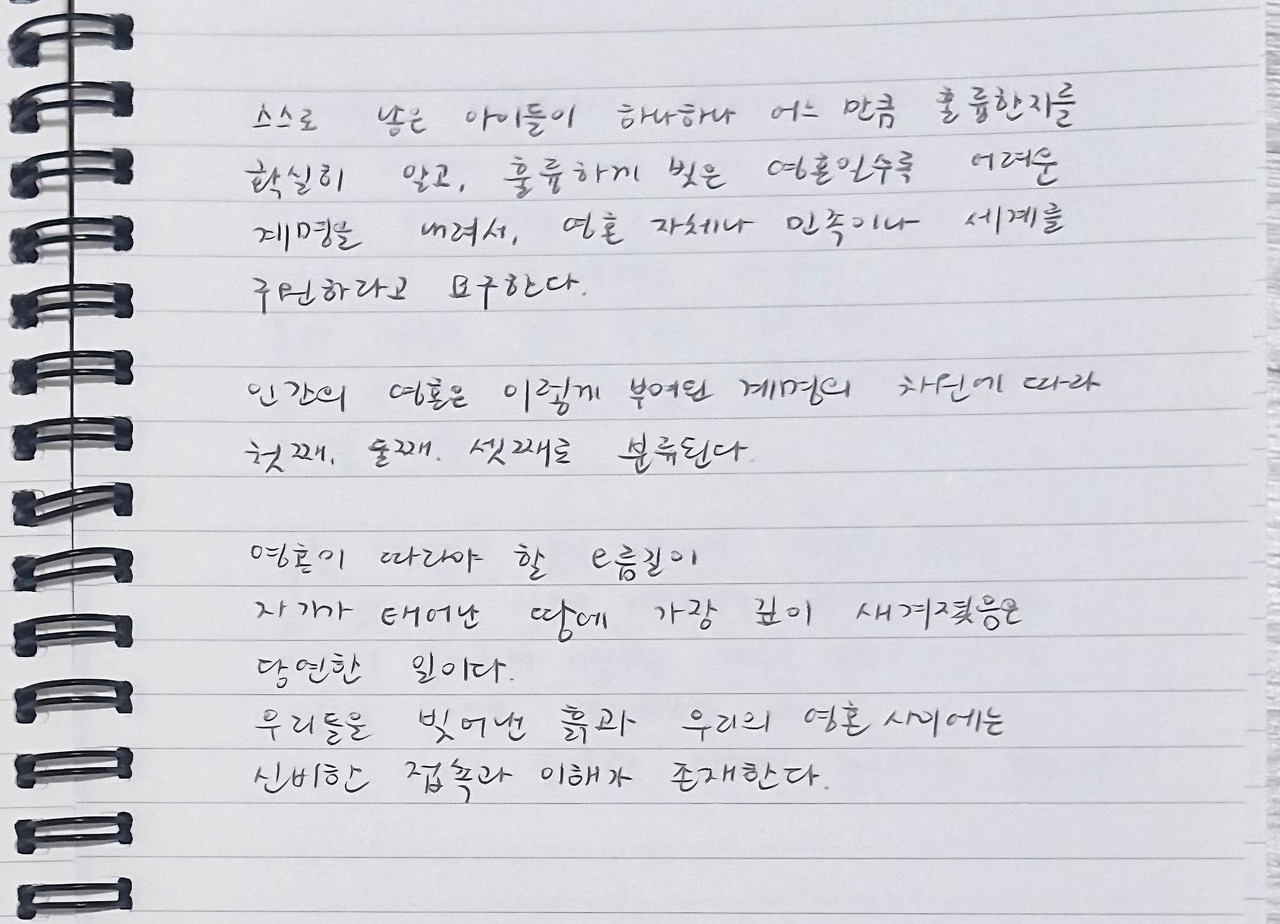 스스로 낳은 아이들이 하나하나 어느 만큼 훌륭한지를
확실히 알고, 훌륭하게 빚은 영혼일수록 어려운
계명을 내려서, 영혼 자체나 민족이나 세계를
구원하라고 요구한다.
인간의 영혼은 이렇게 부여된 계명의 차원에 따라
첫째, 둘째, 셋째로 분류된다.
영혼이 따라야 할 오름길이
자기가 태어난 땅에 가장 깊이 새겨졌음은
당연한 일이다.
우리들을 빚어낸 흙과 우리의 영혼 사이에는
신비한 접촉과 이해가 존재한다.